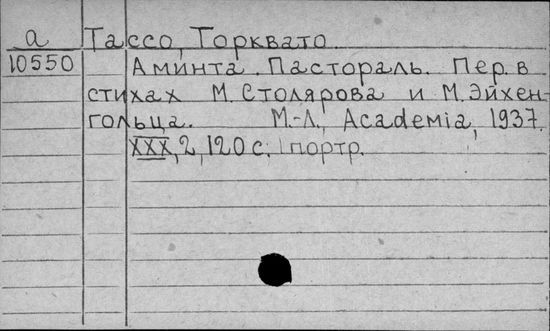 а Тассо, Торквато
10550 Аминта. Пастораль. Пер. в
стихах М. Столярова и М. Эйхен-
гольца. М.-Л., Academia, 1937.
XXX, 2, 120 с; 1 портр.